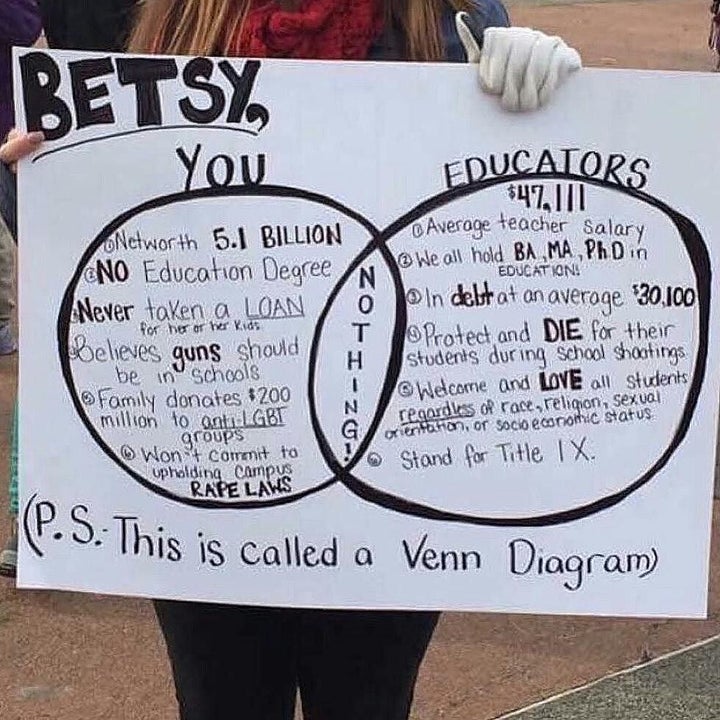 BETSY,
YOU
① Networth 5.1 BILLION
② NO Education Degree
Never taken a LOAN
for her or her kids
Believes guns should
be in schools
⑤ Family donates $200
million to anti-LGBT
groups
⑥ Won't commit to
upholding campus
RAPE LAWS
NOTHING!
EDUCATORS
$47,111
① Average teacher salary
② We all hold BA, MA, PhD in
EDUCATION!
③ In debt at an average $30,100
④ Protect and DIE for their
students during school shootings
⑤ Welcome and LOVE all students
regardless of race, religion, sexual
orientation, or socio economic status.
⑥ Stand for Title IX.
(P.S.- This is called a Venn Diagram)